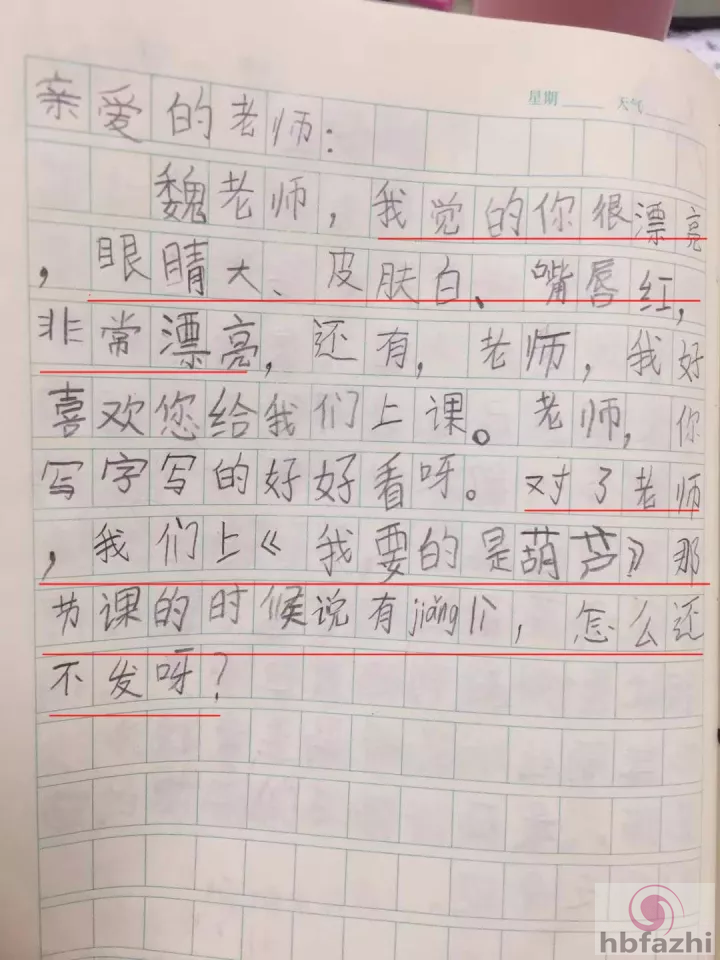 星期 天气
亲爱的老师：
魏老师，我觉的你很漂亮
，眼睛大、皮肤白、嘴唇红，
非常漂亮，还有，老师，我好
喜欢您给我们上课。老师，你
写字写的好好看呀。对了老师
，我们上《我要的是葫芦》那
节课的时候说有jiǎng品，怎么还
不发呀？
hbfazhi